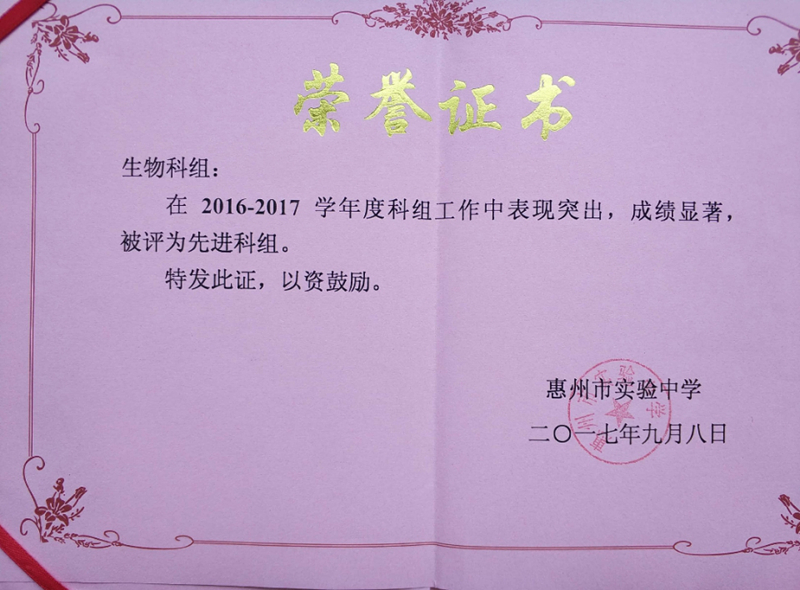 荣誉证书
生物科组：
在 2016-2017 学年度科组工作中表现突出，成绩显著，
被评为先进科组。
特发此证，以资鼓励。
惠州市实验中学
二〇一七年九月八日
惠州市实验中学